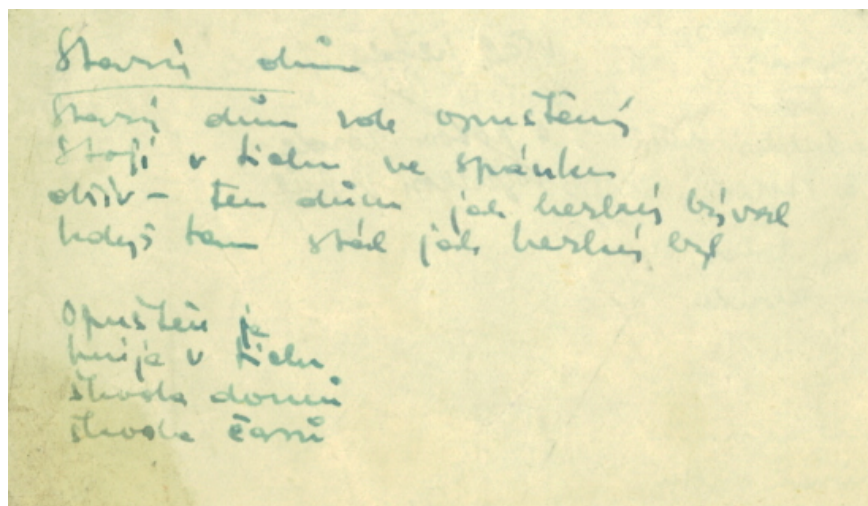 Starý dům
Starý dům zde opuštěný
Stojí v tichu ve spánku
dřív – ten dům jak hezký býval
když tam stál jak hezký byl
Opuštěn je
hnije v tichu
škoda domů
škoda časů